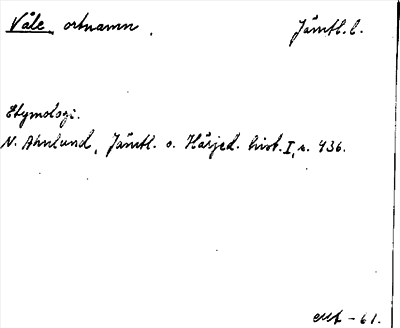 Våle, ortnamn. Jämtl. l.
Etymologi.
N. Ahnlund, Jämtl. o. Härjed. hist. I, s. 436.
-61.